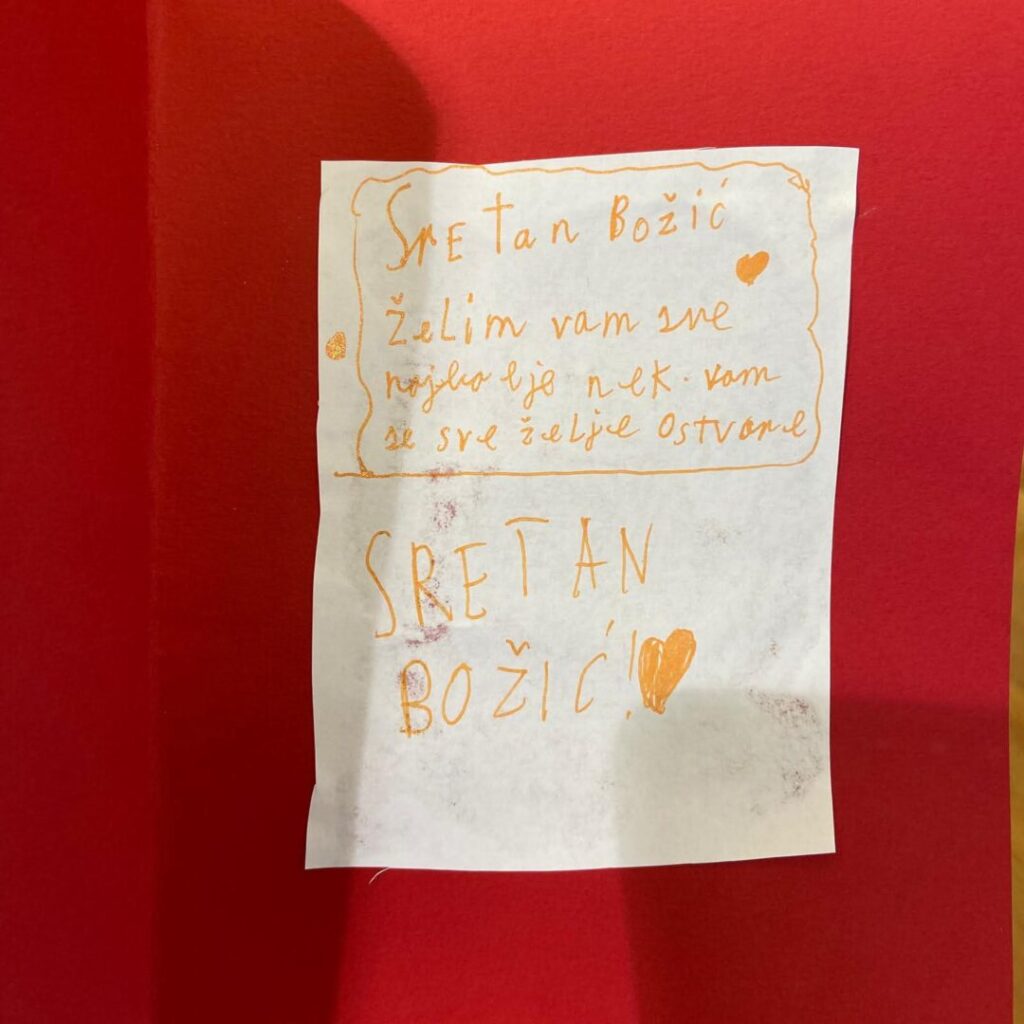 Sretan Božić
Želim vam sve
najbolje nek vam
se sve želje ostvare
SRETAN
BOŽIĆ!